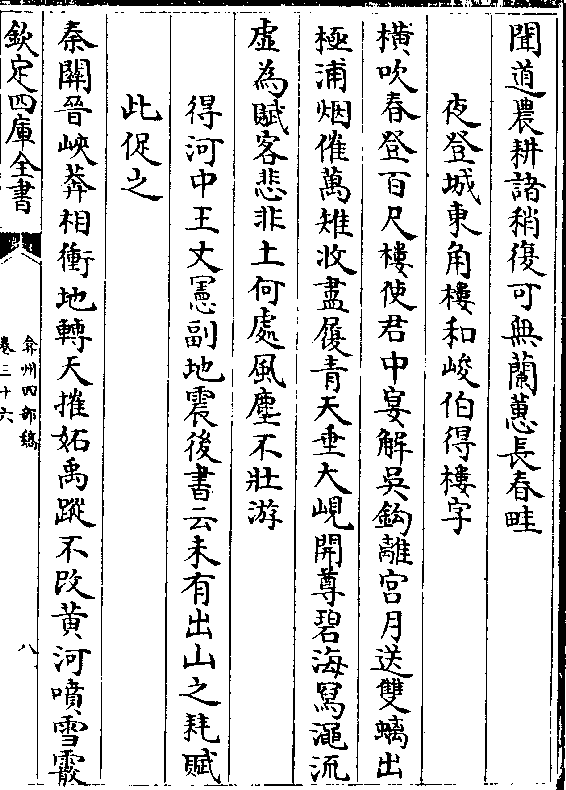 聞道農耕諸稍復可無蘭蕙長春畦
夜登城東角樓和峻伯得樓字
橫吹春登百尺樓使君中宴解吳鈎離宮月送雙螭出
極浦烟催萬雉收盡履青天垂大峴開尊碧海瀉澠流
虛為賦客悲非土何處風塵不壯游
得河中王丈憲副地震後書云未有出山之耗賦
此促之
秦關晉峽莽相衝地轉天摧妬禹蹤不改黃河噴雪霰
欽定四庫全書
弇州四部稿
卷三十六
八